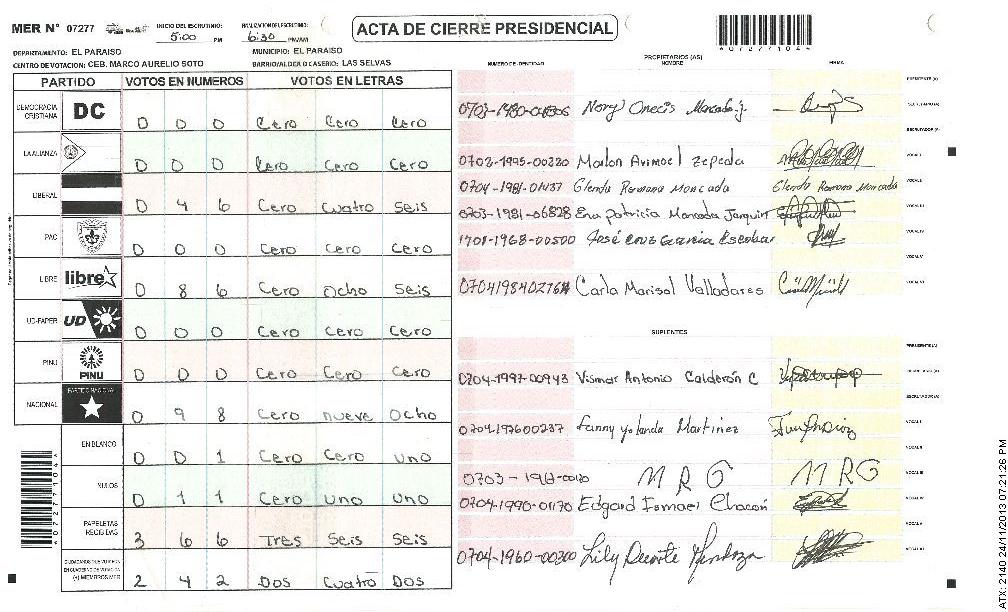 MER N° 07277
INICIO DEL ESCRUTINIO: 5:00 PM
FINALIZACION DEL ESCRUTINIO: 6:30 PM/AM
ACTA DE CIERRE PRESIDENCIAL
4072771044
DEPARTAMENTO: EL PARAISO
MUNICIPIO: EL PARAISO
CENTRO DE VOTACION: CEB. MARCO AURELIO SOTO
BARRIO/ALDEA O CASERIO: LAS SELVAS
PARTIDO VOTOS EN NUMEROS VOTOS EN LETRAS
DEMOCRACIA CRISTIANA DC 0 0 0 Cero Cero Cero
LA ALIANZA 0 0 0 Cero Cero Cero
LIBERAL 0 4 6 Cero Cuatro Seis
PAC 0 0 0 Cero Cero Cero
LIBRE libre 0 8 6 Cero Ocho Seis
UD-FAPER UD 0 0 0 Cero Cero Cero
PINU PINU 0 0 0 Cero Cero Cero
NACIONAL PARTIDO NACIONAL 0 9 8 Cero nueve Ocho
EN BLANCO 0 0 1 Cero Cero uno
NULOS 0 1 1 Cero uno uno
PAPELETAS RECIBIDAS 3 6 6 Tres Seis Seis
(+) MIEMBROS MER 2 4 2 Dos Cuatro Dos
NUMERO DE IDENTIDAD
PROPIETARIOS (AS)
NOMBRE
FIRMA
PRESIDENTE (A)
Nory Onecis Moncada j.
SECRETARIO (A)
ESCRUTADOR (A)
0703-1995-00220 Marlon Avimael Zepeda
VOCAL I
0704-1981-01437 Glenda Romana Moncada Glenda Romana Moncada
VOCAL II
0703-1981-06828 Ena Patricia Moncada Jarquin
VOCAL III
1701-1968-00500 José Cruz Garcia Escobar
VOCAL IV
VOCAL V
Carla Marisol Valladares
VOCAL VI
SUPLENTES
PRESIDENTE (A)
0704-1997-00943 Vismar Antonio Calderón C
SECRETARIO (A)
ESCRUTADOR (A)
0704-197600237 Fanny Yolanda Martinez
VOCAL I
VOCAL II
M R G M R G
VOCAL III
0704-1990-01170 Edgard Ismael Chacón
VOCAL IV
VOCAL V
0704-1960-00200 Lily Mendoza
VOCAL VI
4072771044
ATX: 2140 24/11/2013 07:21:26 PM